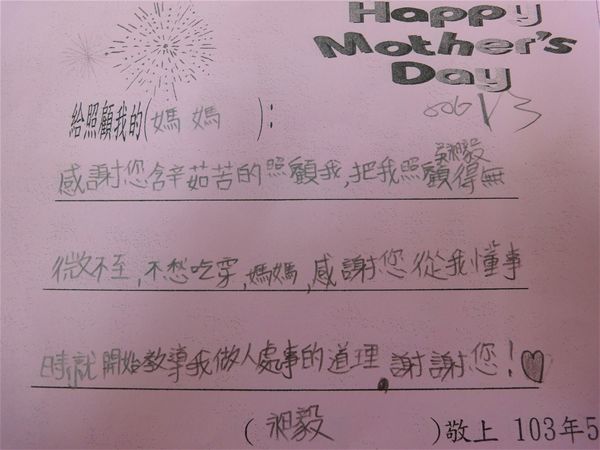 Happy
Mother's
Day
給照顧我的(媽媽):
感謝您含辛茹苦的照顧我,把我照顧得無
微不至,不愁吃穿,媽媽,感謝您從我懂事
時就開始教導我做人處事的道理,謝謝您!♥
(昶毅)敬上 103年5